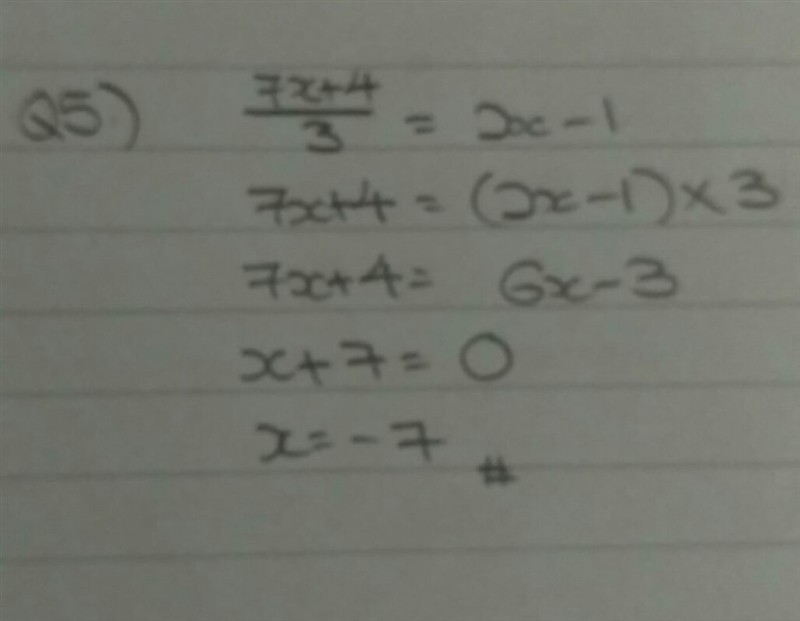 Q5) (7x+4)/3 = 2x-1
7x+4 = (2x-1)×3
7x+4 = 6x-3
x+7 = 0
x = -7 #